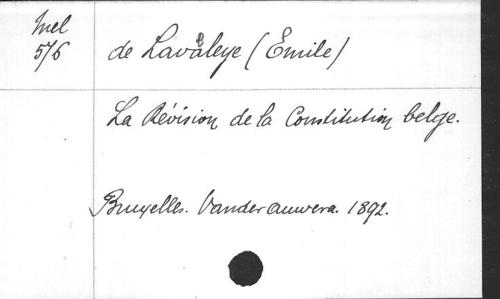 Mel
5/6
de Laveleye (Emile)
La Révision de la Constitution belge.
Bruxelles. Vanderauwera. 1892.